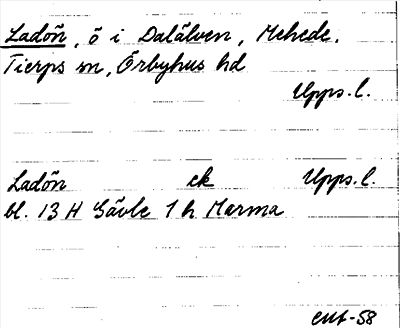 Ladön, ö i Dalälven, Mehede.
Tierps sn, Örbyhus hd
Upps. l.
Ladön ek Upps. l.
bl. 13 H Gävle 1 h Marma
ent-58